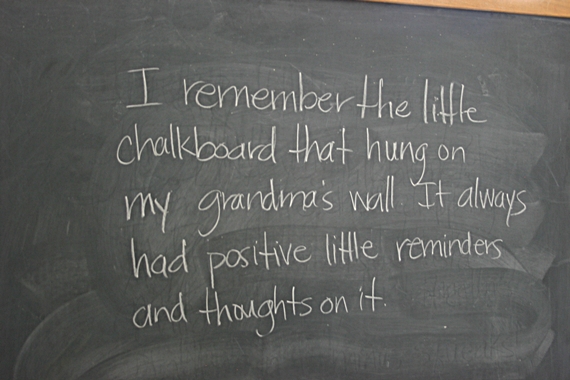 I remember the little
chalkboard that hung on
my grandma's wall. It always
had positive little reminders
and thoughts on it.